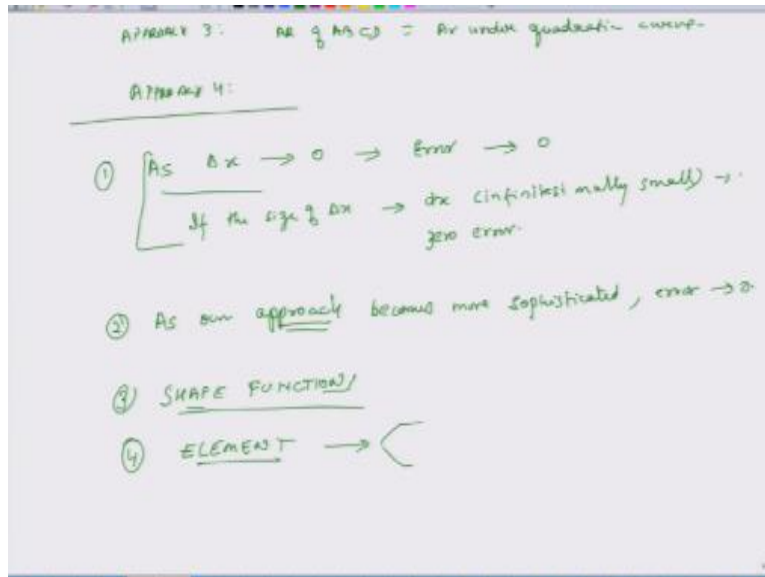 APPROACH 3: AR of ABCD = Ar under quadratic curve.
APPROACH 4:
① AS Δx → 0 → Error → 0
If the size of Δx → dx (infinitesimally small) →
zero error.
② As our approach becomes more sophisticated, error → 0.
③ SHAPE FUNCTION
④ ELEMENT →